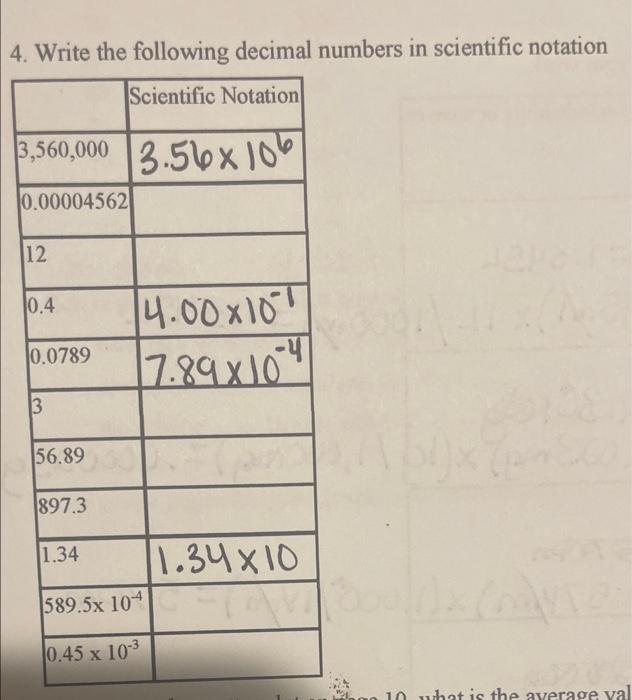 4. Write the following decimal numbers in scientific notation
Scientific Notation
3,560,000 3.56 x 10⁶
0.00004562
12
0.4 4.00 x 10⁻¹
0.0789 7.89 x 10⁻⁴
3
56.89
897.3
1.34 1.34 x 10
589.5x 10⁻⁴
0.45 x 10⁻³
10, what is the average val